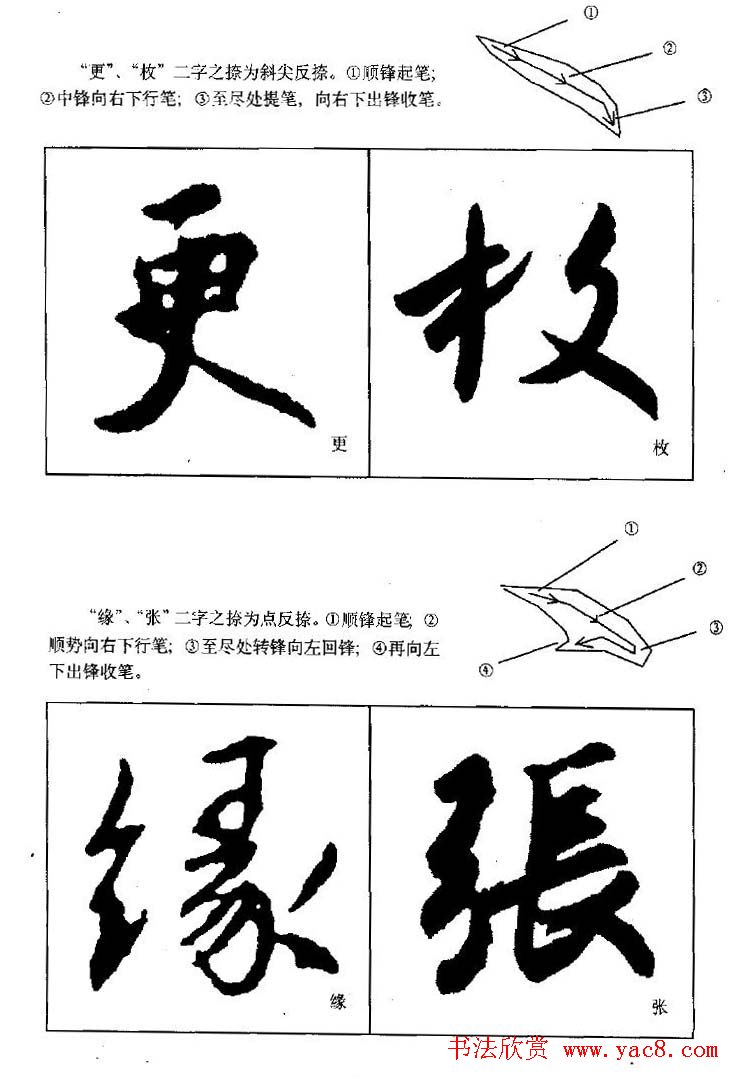 ①
“更”、“枚”二字之捺为斜尖反捺。①顺锋起笔；
②
②中锋向右下行笔；③至尽处提笔，向右下出锋收笔。
③
更 枚
更 枚
①
②
“缘”、“张”二字之捺为点反捺。①顺锋起笔；②
③
顺势向右下行笔；③至尽处转锋向左回锋；④再向左
④
下出锋收笔。
缘 張
缘 张
书法欣赏 www.yac8.com